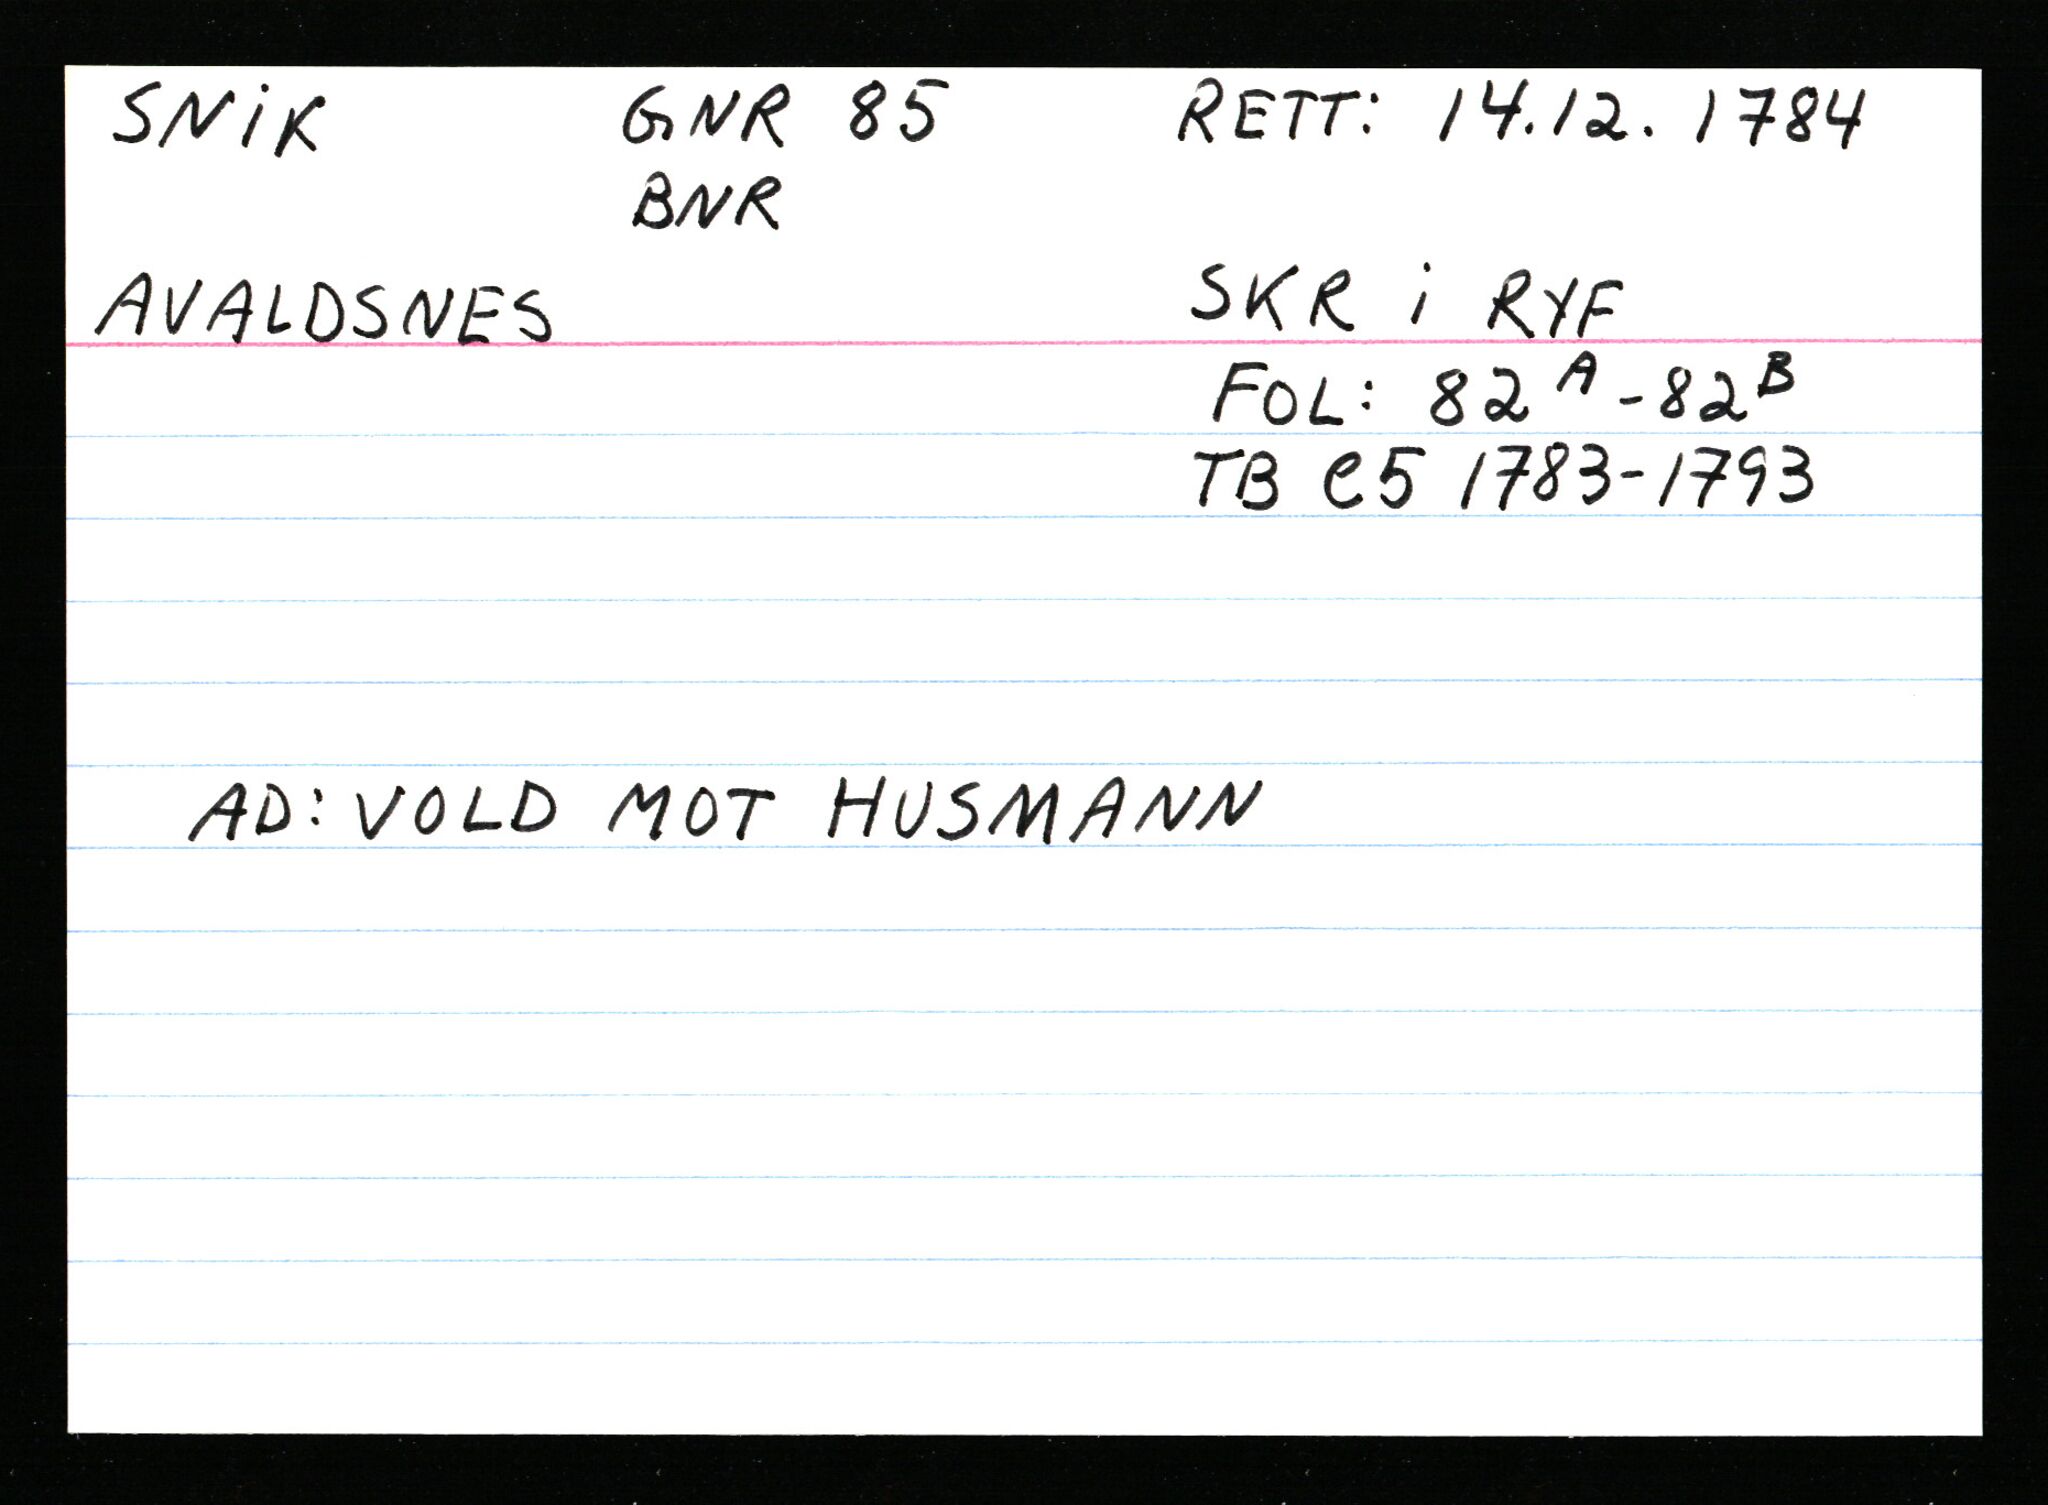 SNiK GNR 85 RETT: 14.12. 1784
BNR
AVALDSNES SKR i RYF
FOL: 82A-82B
TB C5 1783-1793
AD: VOLD MOT HUSMANN